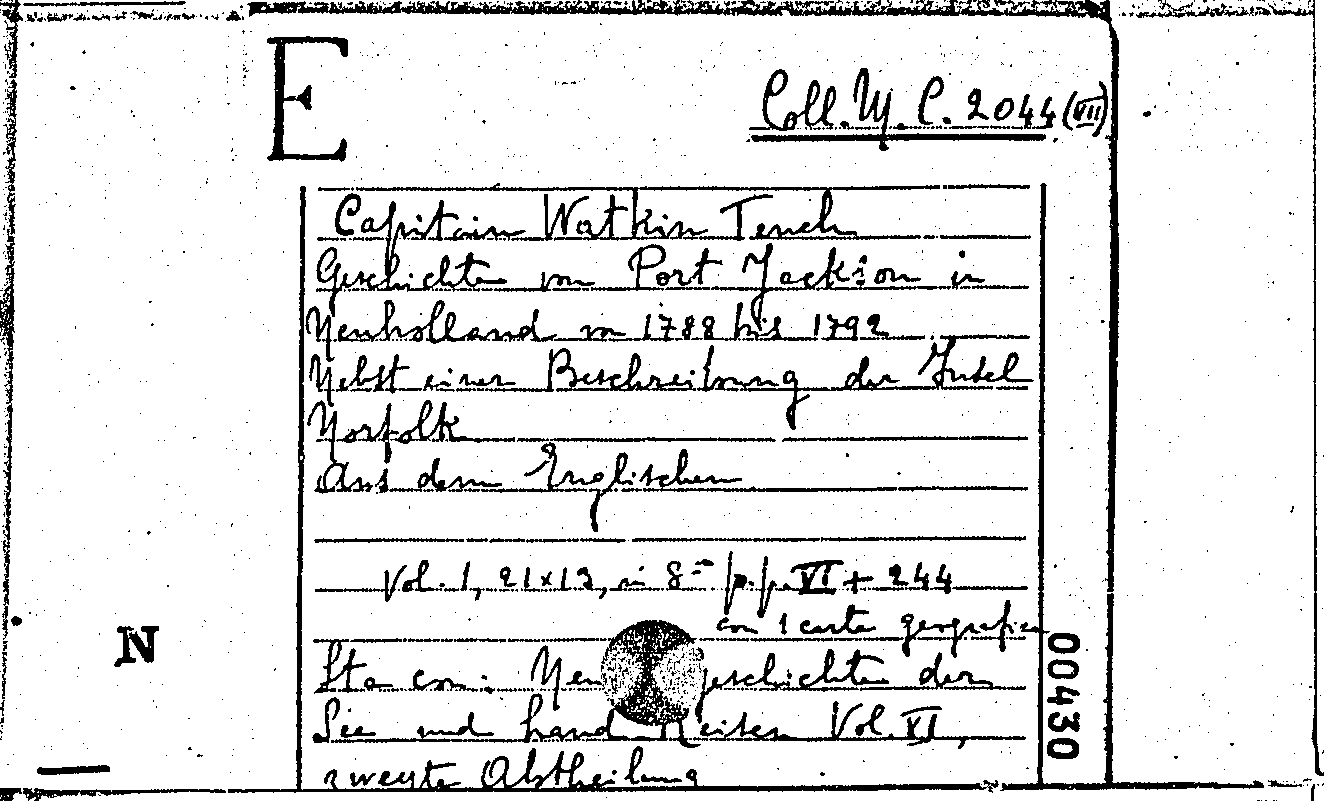 E
Coll. M. C. 2044 (VII)
Capitain Watkin Tench
Geschichte von Port Jackson in
Neuholland von 1788 bis 1792
Nebst einer Beschreibung der Insel
Norfolk
Aus dem Englischen
Vol. 1, 21x13, in 8° p.p. VI + 244
con 1 carta geografica
N
Sta con: Neu geschichte der
See und Land Reisen Vol. XI,
zweyte Abtheilung
00430